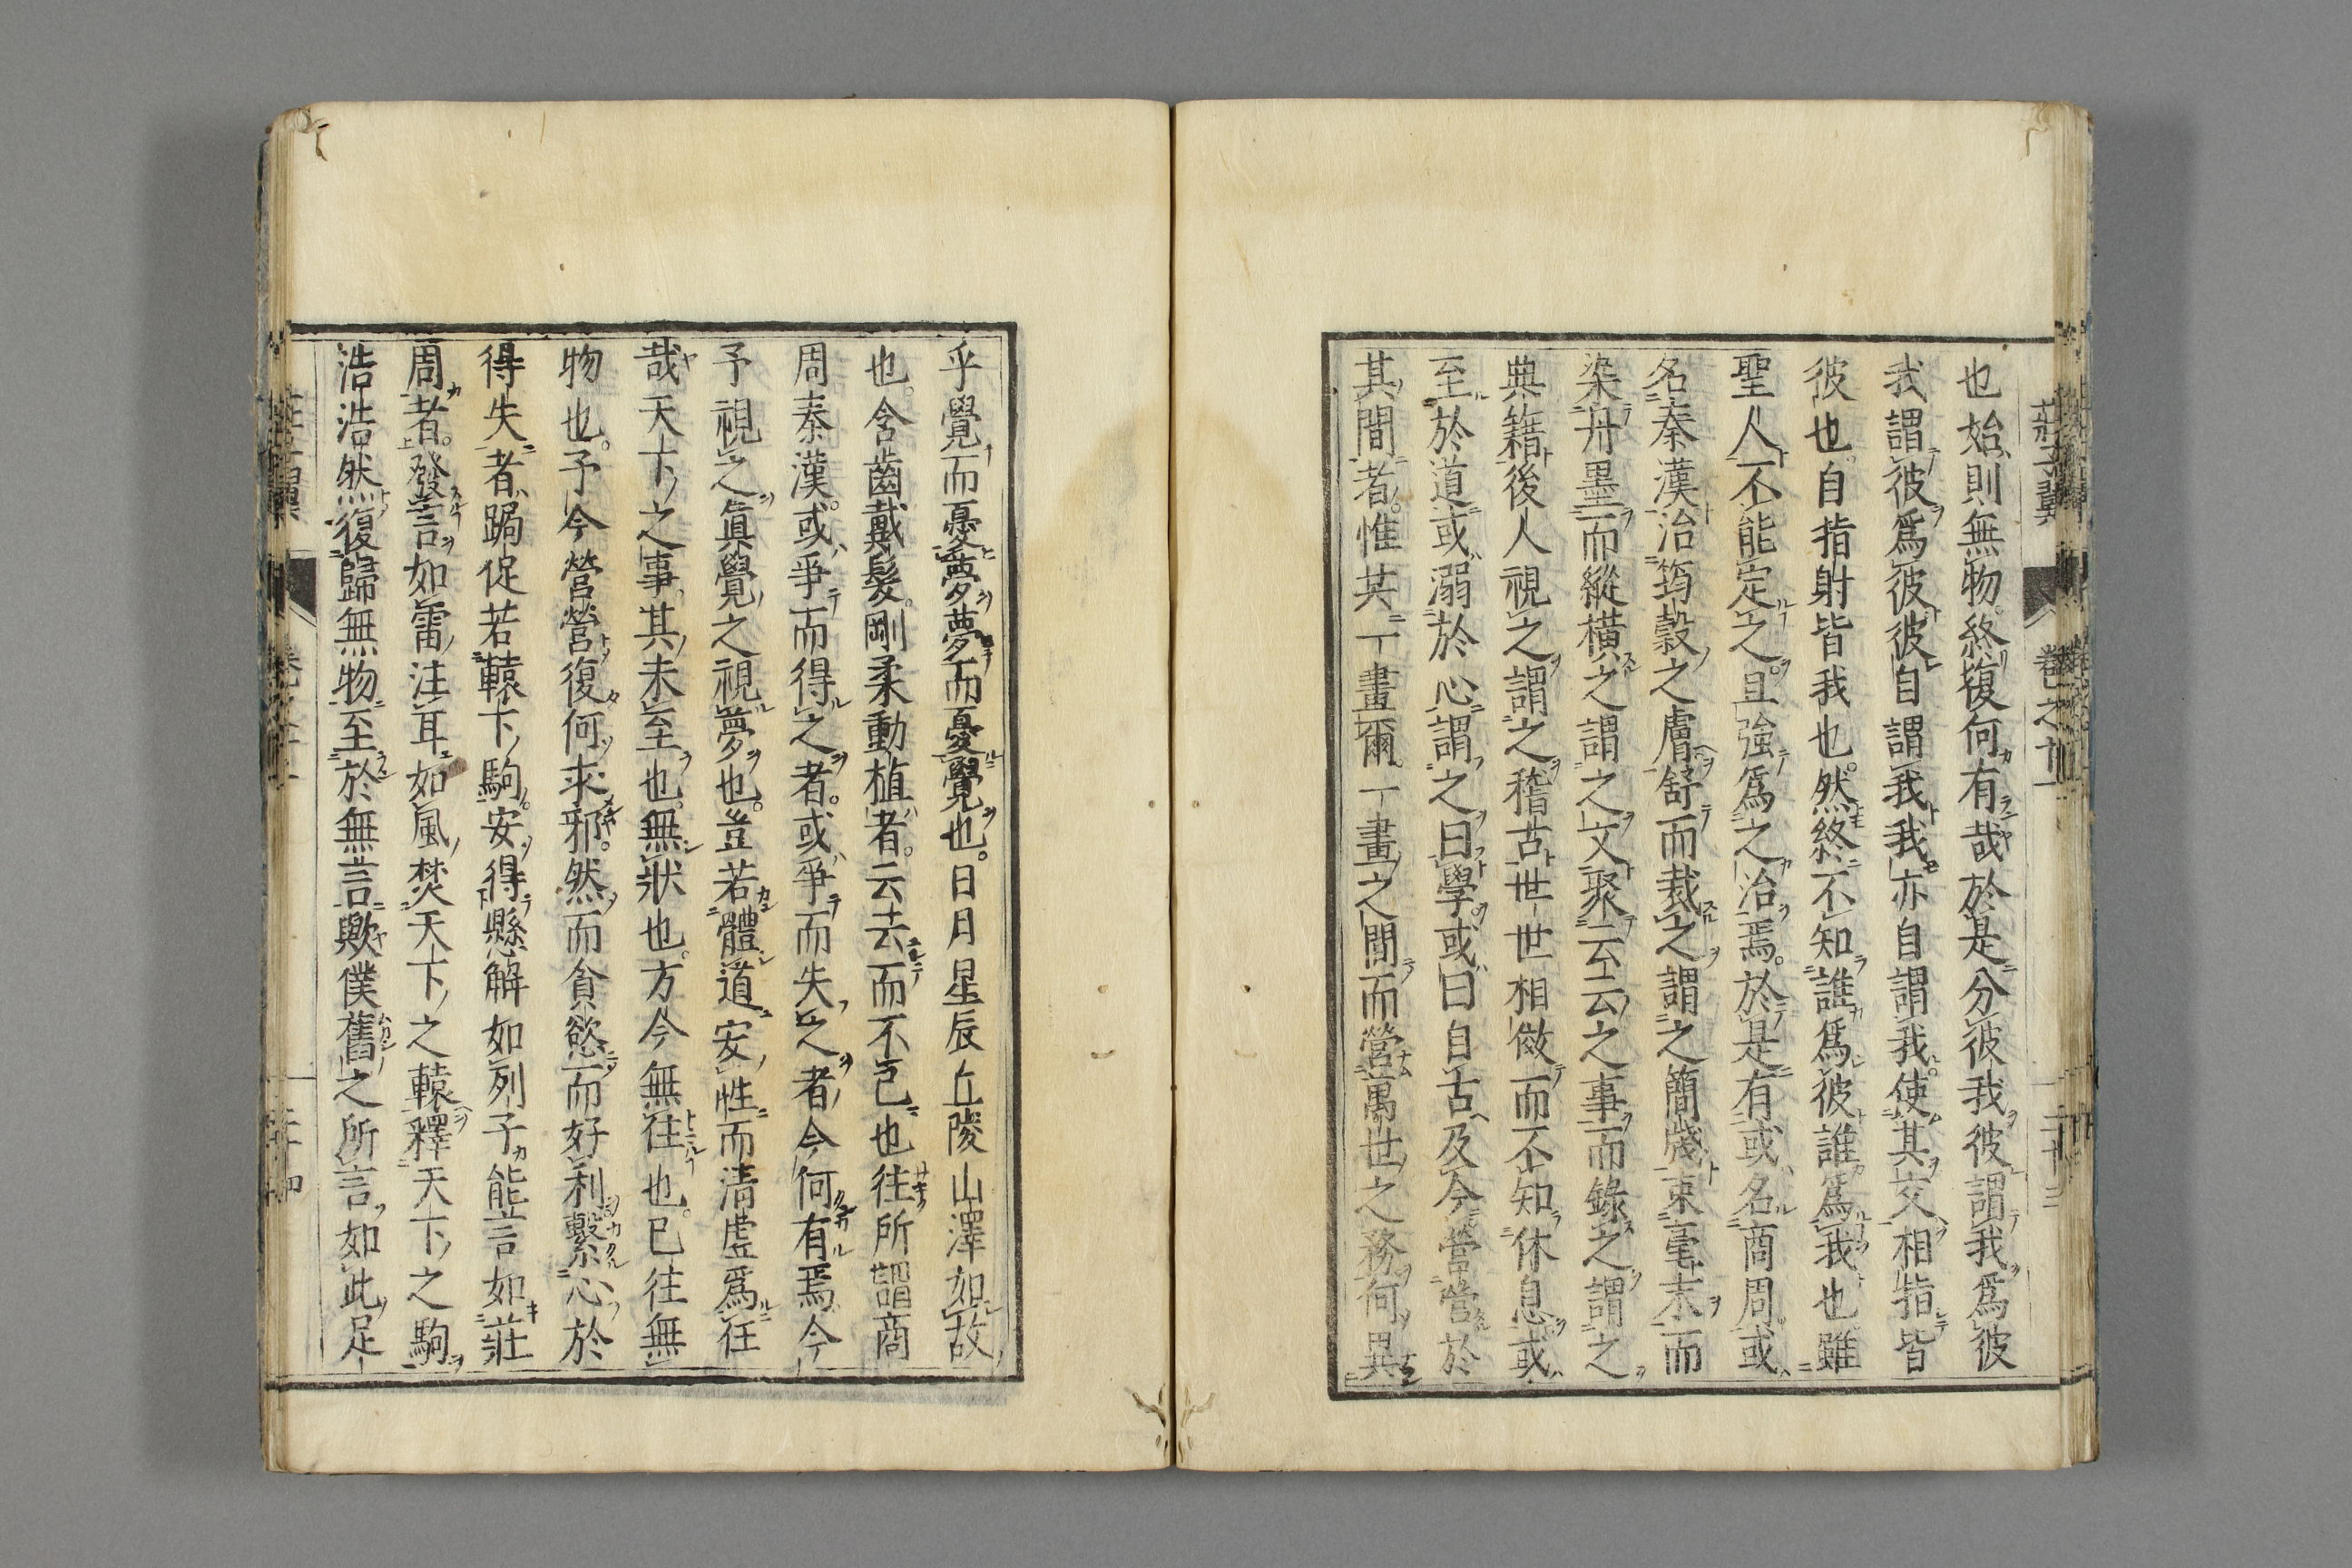 莊子翼 卷之十一 二十三
也始則無物終復何有哉於是分彼我彼謂我爲彼
我謂彼爲彼彼自謂我我亦自謂我使其交相指皆
彼也自指射皆我也然終不知誰爲彼誰爲我也雖
聖人不能定之且強爲之治焉於是有或名商周或
名秦漢治筠穀之膚舒而裁之謂之簡牋束毫末而
染丹墨而縱橫之謂之文聚云云之事而錄之謂之
典籍後人視之謂之稽古世世相倣而不知休息或
至於道或溺於心謂之曰學或曰自古及今營營於
其間者惟其一畫爾一畫之間而營萬世之務何異
乎覺而憂夢夢而憂覺也。日月星辰丘陵山澤如故
也。含齒戴髮。剛柔動植者。云去而不已也往所謂商
周秦漢。或爭而得之者。或爭而失之者今何有焉今
予視之眞覺之視夢也。豈若體道安性而淸虛爲任
哉天下之事其未至也。無狀也。方今無往也。已往無
物也。予今營營復何求邪。然而貪慾而好利繫心於
得失者跼促若轅下駒。安得懸解如列子能言如莊
周者。發言如雷注耳如風焚天下之轅釋天下之駒
浩浩然復歸無物至於無言歟僕舊之所言如此足